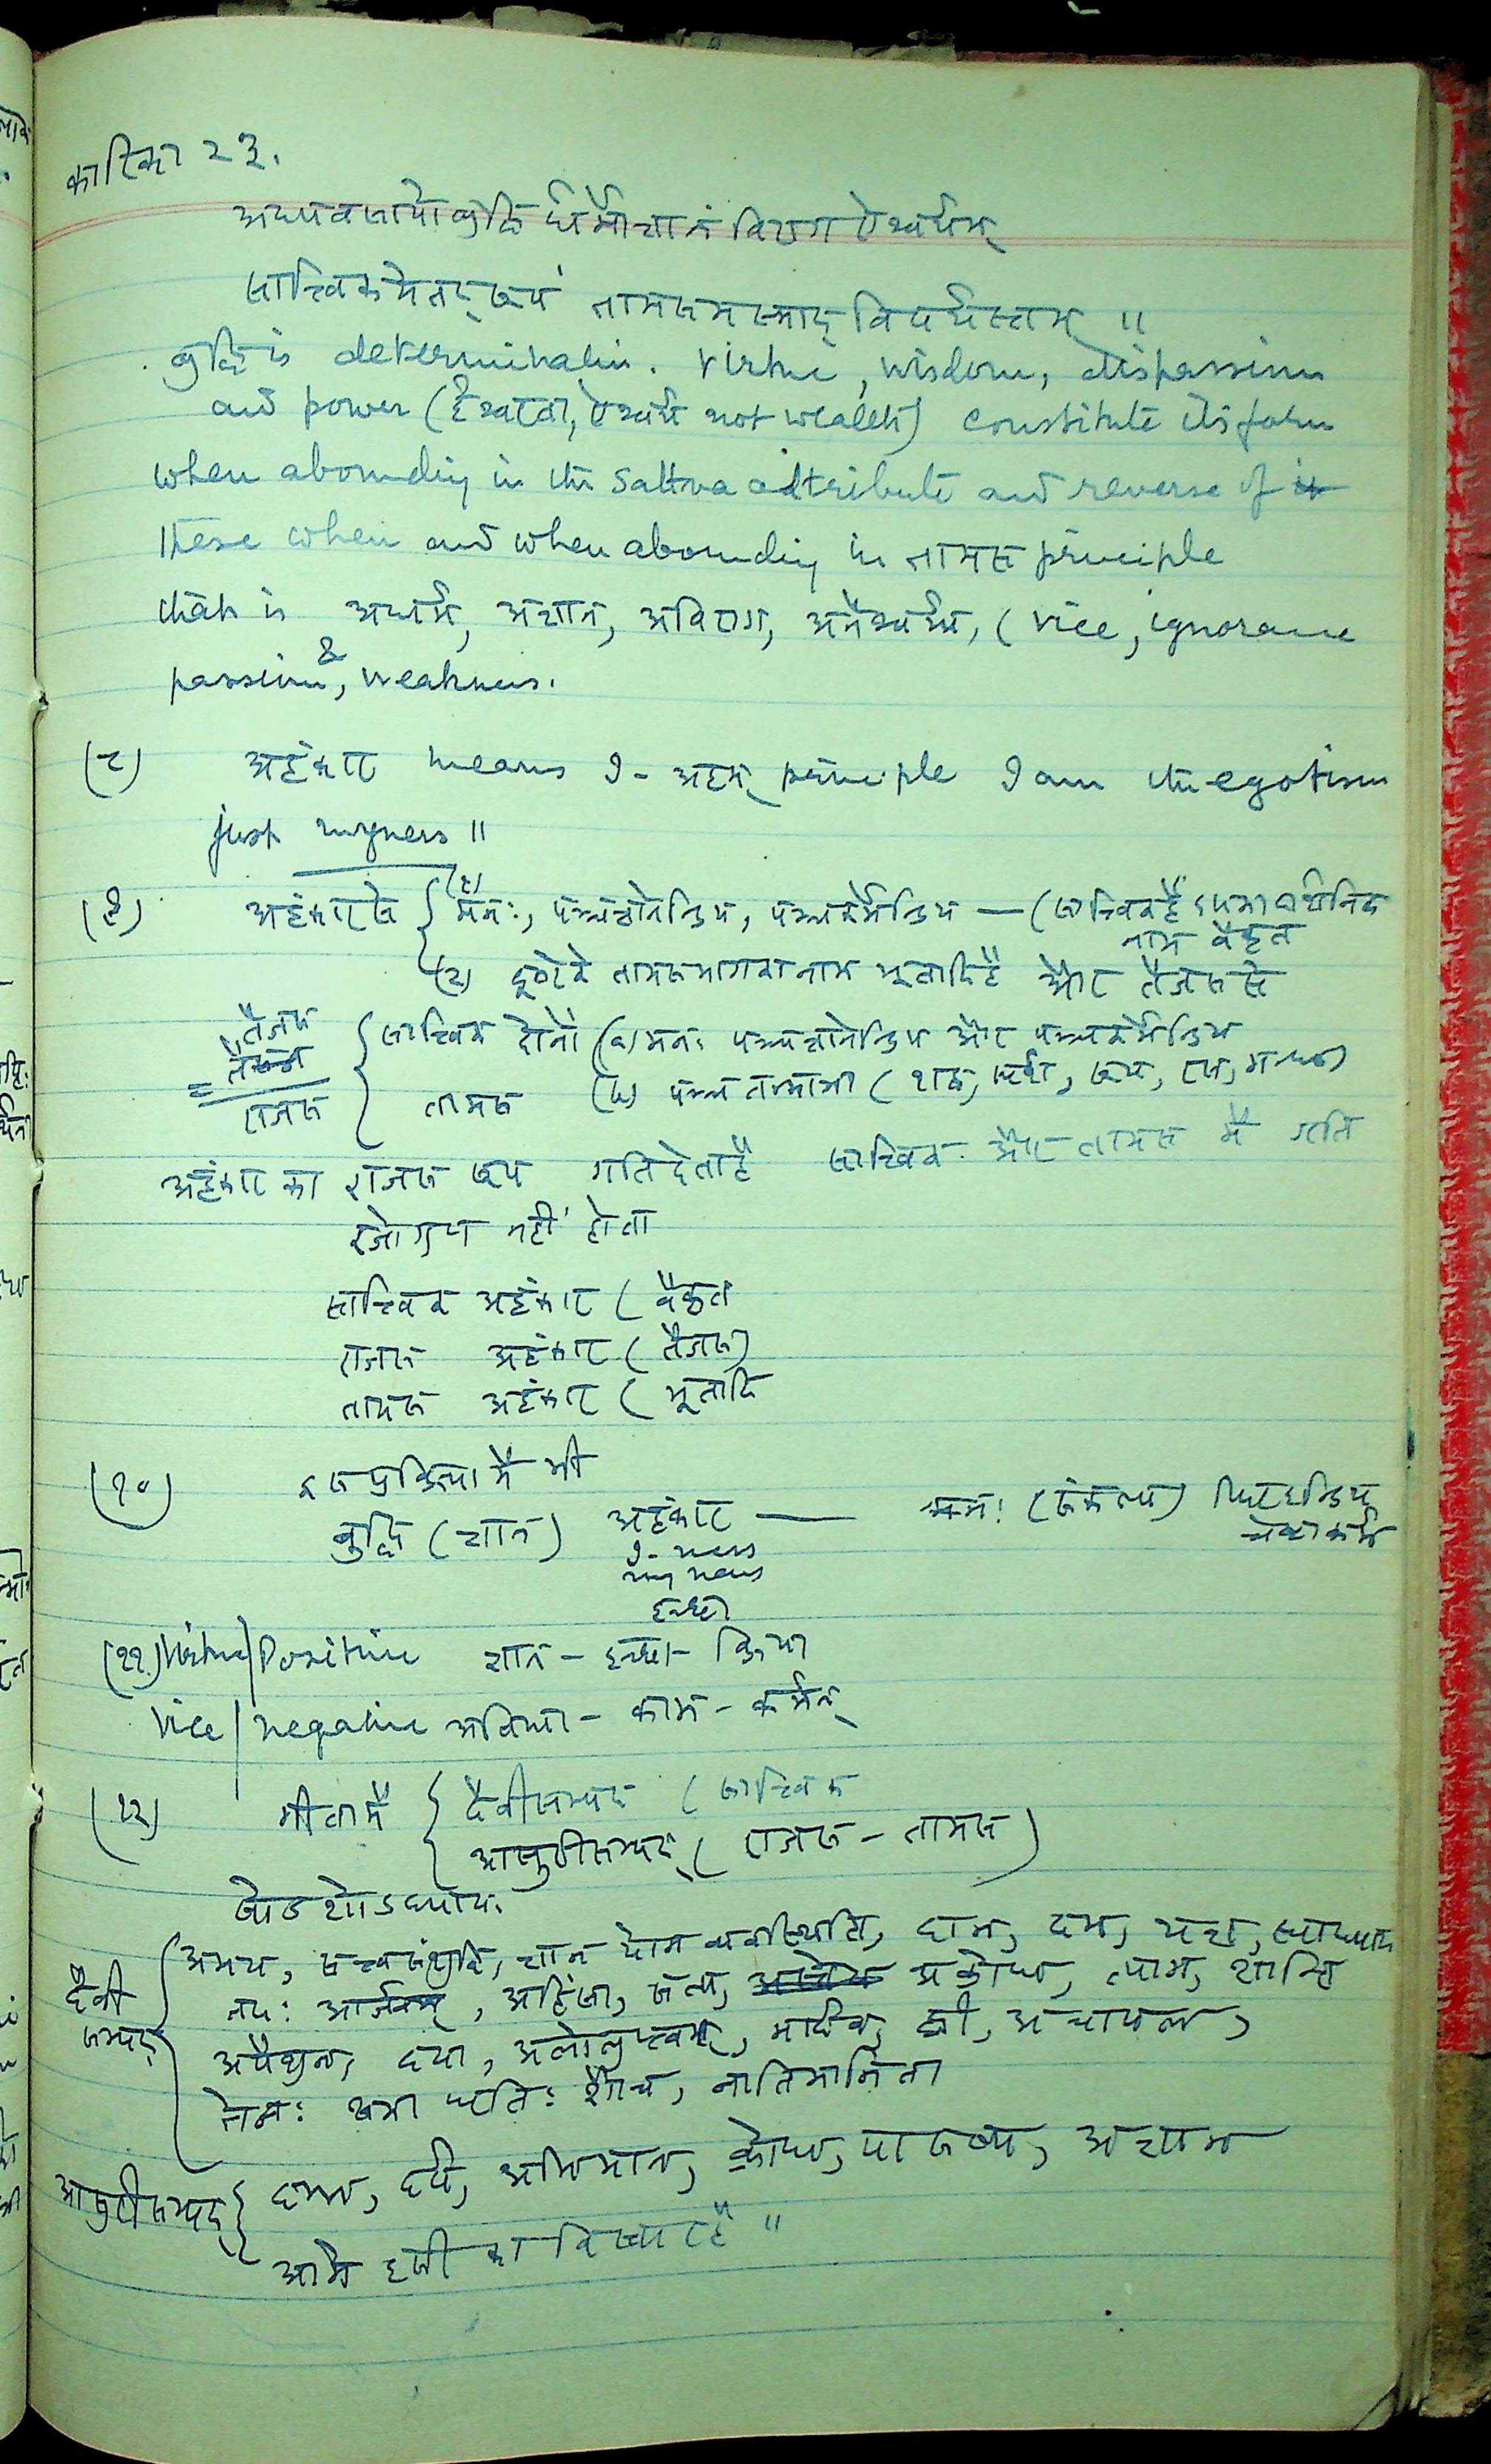 कारिका २३.
अध्यवसायो बुद्धि र्धर्मोज्ञानं विराग ऐश्वर्यम्
सात्त्विकमेतद्रूपं तामसमस्माद् विपर्यस्तम् ॥
बुद्धि is determination. Virtue, wisdom, dispassion
and power (ईश्वरता, ऐश्वर्य not wealth) constitute its form
when abounding in the Sattva attribute and reverse of it
these when and when abounding in तामस principle
that is अधर्म, अज्ञान, अविराग, अनैश्वर्य, (vice, ignorance
passion, & weakness.
(८) अहंकार means I - अहम् principle I am the egotism
just myness ॥
(९) अहंकारके { (१) मनः, पञ्चज्ञानेन्द्रिय, पञ्चकर्मेन्द्रिय — (सात्त्विक है
नाम वैकृत
(२) दूसरे के तामसभागका नाम भूतादि है और तैजस से
तैजस
= राजस
{ सात्त्विक दोनों (a) मनः पञ्चज्ञानेन्द्रिय और पञ्चकर्मेन्द्रिय
तामस (b) पञ्च तन्मात्रा (शब्द, स्पर्श, रूप, रस, गन्ध)
अहंकार का राजस रूप गति देता है सात्त्विक और तामस में गति
रजोगुण नहीं होता
सात्त्विक अहंकार (वैकृत
राजस अहंकार (तैजस)
तामस अहंकार (भूतादि
(१०) इस प्रक्रिया में भी
बुद्धि (ज्ञान) अहंकार — मनः (संकल्प)
I-ness
myness
इच्छा
(११.) Virtue | Positive ज्ञान - इच्छा - क्रिया
Vice | negative अविद्या - काम - कर्मन्
(१२) गीता में { दैवीसम्पद् (सात्त्विक
आसुरीसम्पद् (राजस - तामस)
षोडशोऽध्यायः
दैवी सम्पद् { अभय, सत्त्वसंशुद्धि, ज्ञान योग व्यवस्थिति, दान, दम, यज्ञ, स्वाध्याय
तपः आर्जवम्, अहिंसा, सत्य, अक्रोध, त्याग, शान्ति
अपैशुन, दया, अलोलुप्त्वम्, मार्दव, ह्री, अचापल,
तेजः क्षमा धृतिः शौच, नातिमानिता
आसुरीसम्पद् { दम्भ, दर्प, अभिमान, क्रोध, पारुष्य, अज्ञान
आगे इसी का विस्तार है ॥